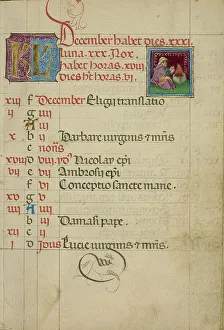 KL December habet dies.XXXI.
Luna.XXX. Nox
habet horas.XVIII.
Dies het horas.VI.
xiij f December Eligij translatio
ij g
A
x b iiij Barbare virginis & mris
c nonis
xviij d viij id9 Nicolay epi
vij e vij Ambrosij epi
f vi Conceptio sancte marie.
xv g v
iiij A iiij
b iij Damasi pape.
xij c ij
i d Idus Lucie virginis & mris